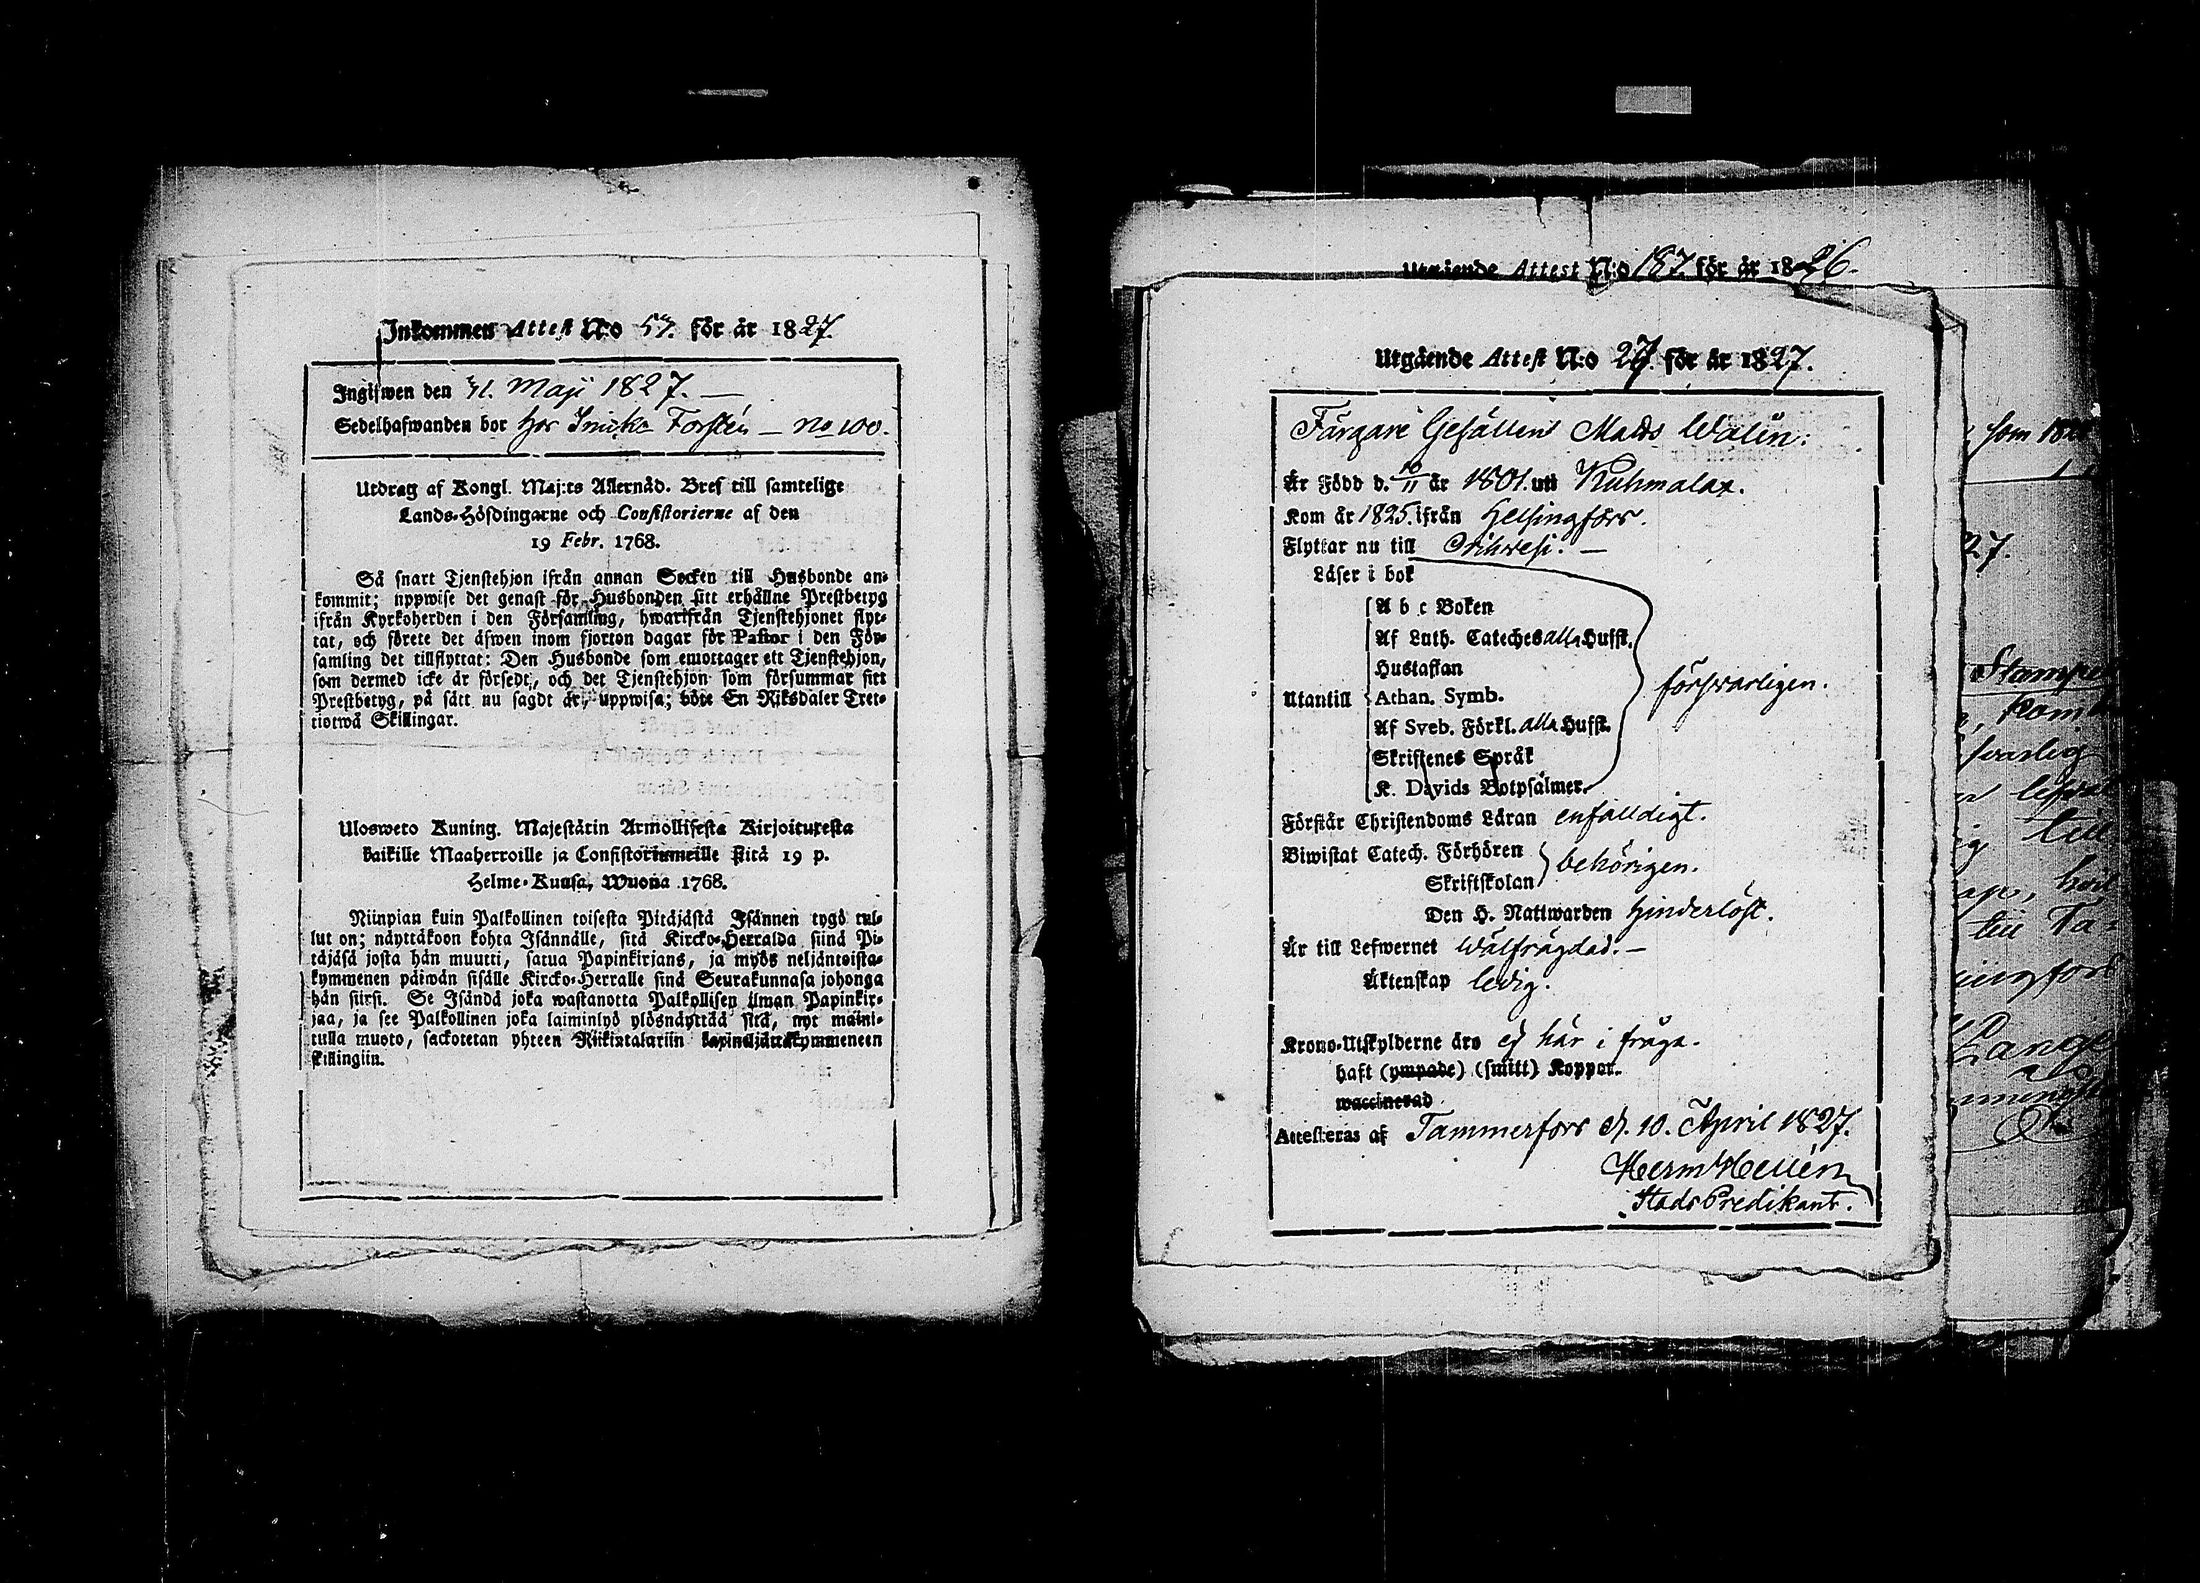 Inkommen Attest N:o 57. för år 1827.
Ingifwen den 31. Maji 1827. —
Sedelhafwanden bor hos Forstén — No 100.
Utdrag af Kongl. Maj:ts Allernåd. Bref till samtelige
Lands-Höfdingarne och Consistorierne af den
19 Febr. 1768.
Så snart Tjenstehjon ifrån annan Socken till Husbonde an-
kommit; uppwise det genast för Husbonden sitt erhållne Prestbetyg
ifrån Kyrkoherden i den Församling, hwarifrån Tjenstehjonet flyt-
tat, och förete det äfwen inom fjorton dagar för Pastor i den För-
samling det tillflyttat: Den Husbonde som emottager ett Tjenstehjon,
som dermed icke är försedt, och det Tjenstehjon som försummar sitt
Prestbetyg, på sätt nu sagdt är, uppwisa; böte En Riksdaler Tret-
tiotwå Skillingar.
Ulosweto Kuning. Majestätin Armollisesta Kirjoituxesta
kaikille Maaherroille ja Consistoriumeille siitä 19 p.
Helme-Kuusa, Wuona 1768.
Niinpian kuin Palkollinen toisesta Pitäjästä Isännen tygö tul-
lut on; näyttäkoon kohta Isännälle, sitä Kircko-Herralda siinä Pi-
täjäsä josta hän muutti, saatua Papinkirjans, ja myös neljäntoista-
kymmenen päiwän sisälle Kircko-Herralle sinä Seurakunnasa johonga
hän siirsi. Se Isändä joka wastanotta Palkollisen ilman Papinkir-
jaa, ja see Palkollinen joka laiminlyö ylösnäyttää sitä, nyt maini-
tulla muoto, sackotetan yhteen Riikintalariin kaxineljättäkymmeneen
killingiin.
Utgående Attest N:o 187 för år 1826.
Utgående Attest N:o 27. för år 1827.
Färgare Gesällen Matts Walin:
Är Född d. 10/11 år 1801. uti Kuhmalax.
Kom år 1825. ifrån Helsingfors.
Flyttar nu till Orihwesi. —
Läser i bok
A b c Boken
Af Luth. Cateches alla Hufst.
Hustaflan
Utantill Athan. Symb. försvarligen.
Af Sveb. Förkl. alla Hufst.
Skriftenes Språk
K. Davids Botpsalmer.
Förstår Christendoms Läran enfalldigt.
Biwistat Catech. Förhören
Skriftskolan behörigen.
Den H. Nattwarden hinderlöst.
Är till Lefwernet wälfrägdad. —
Äktenskap ledig.
Krono-Utskylderne äro ej här i fråga.
haft (ympade) (smitt) Koppor.
waccinerad
Attesteras af Tammerfors d. 10. April 1827.
Herm Hellén
Stads Predikant.
som
27.
till